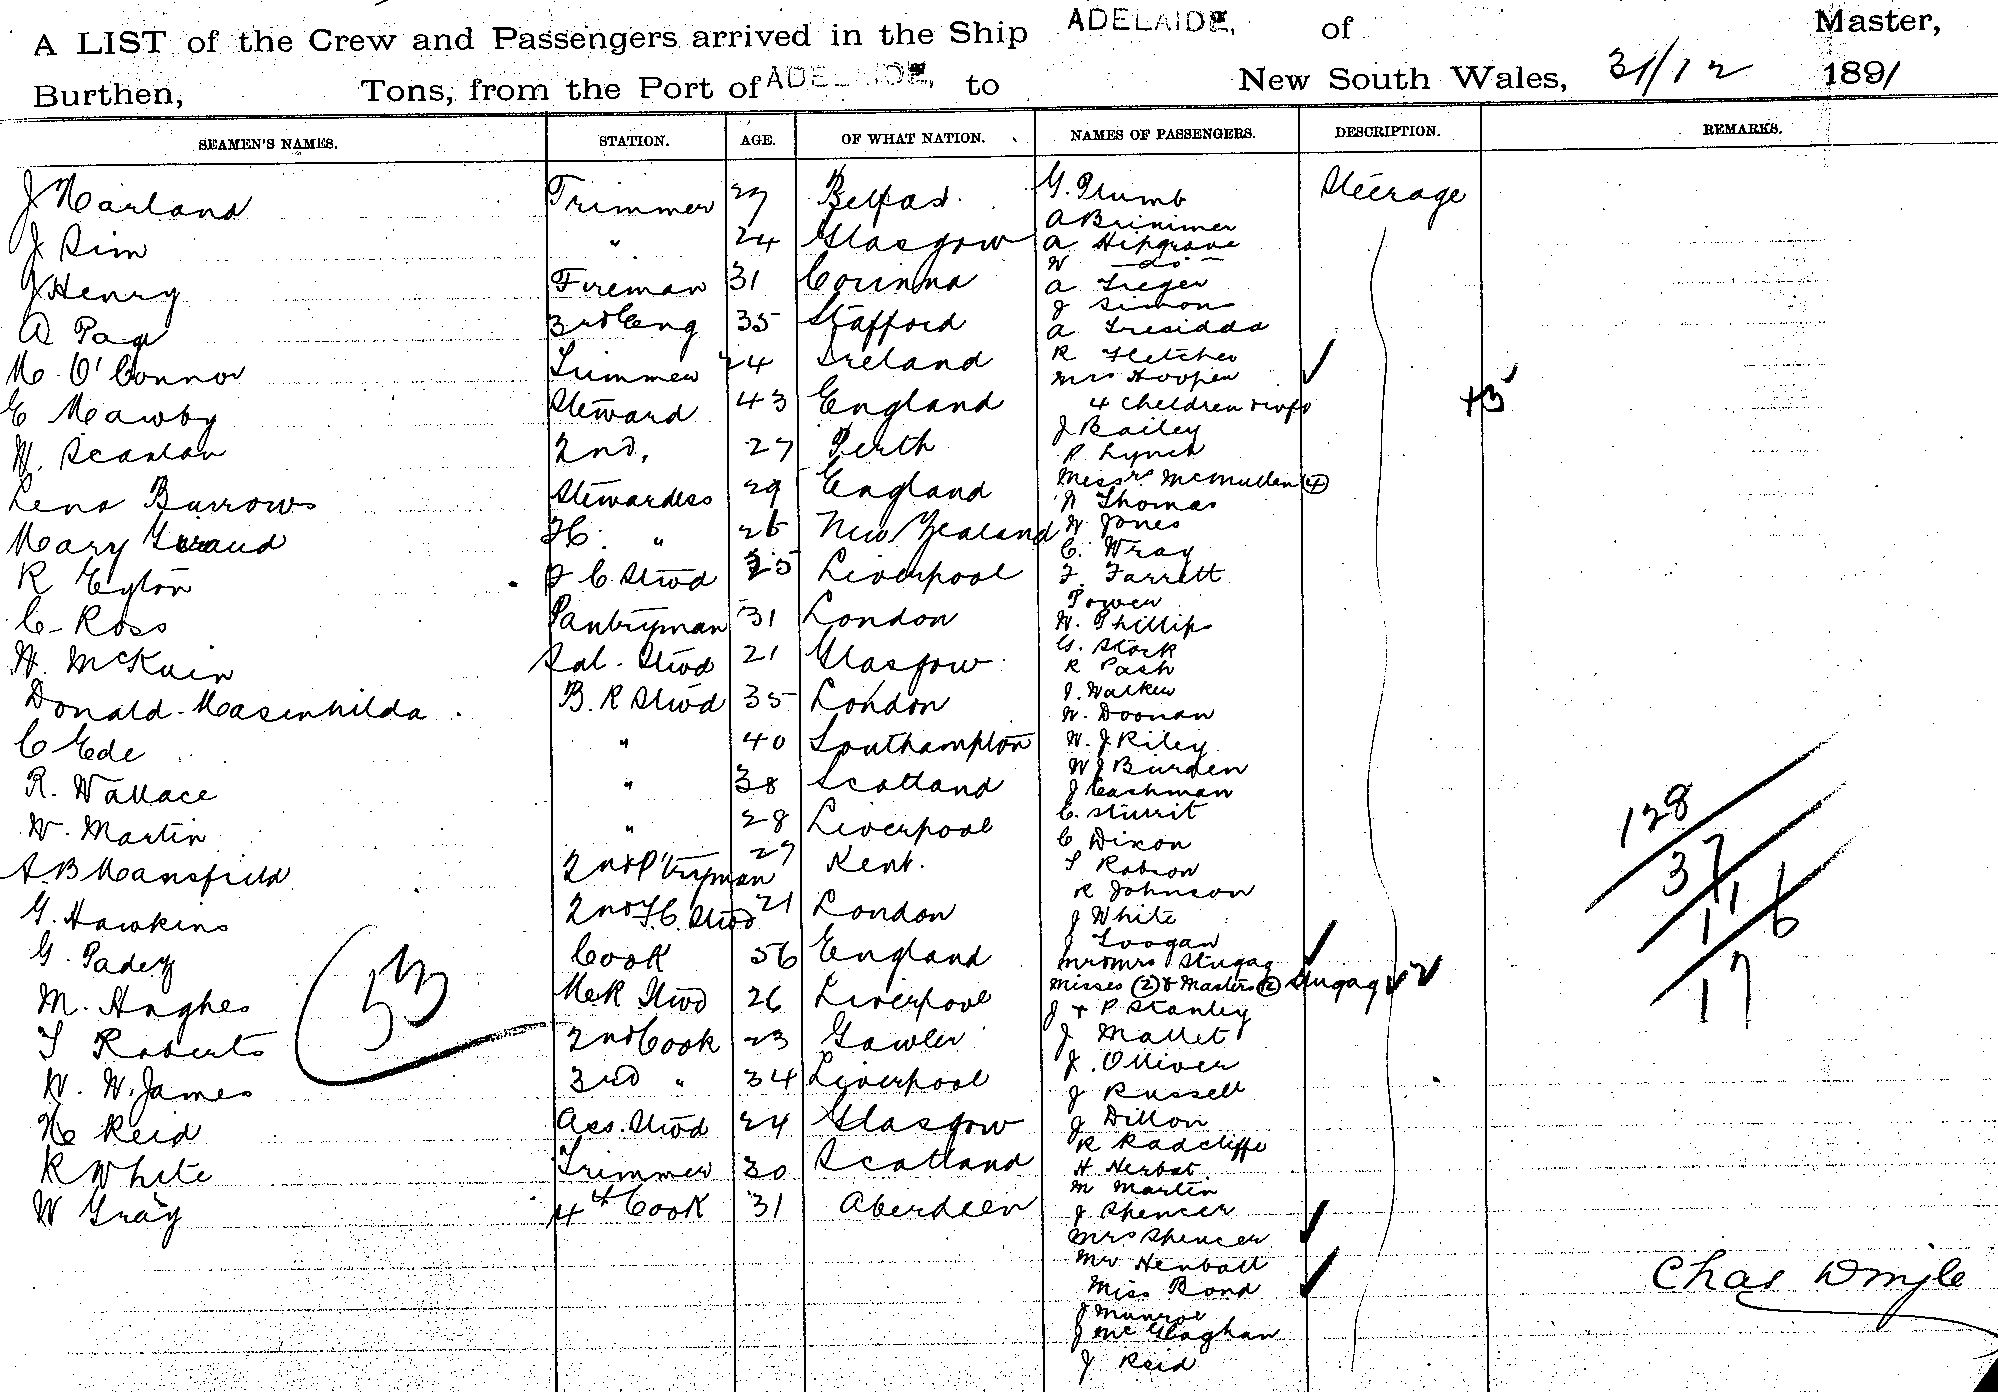 A LIST of the Crew and Passengers arrived in the Ship ADELAIDE, of Master,
Burthen, Tons, from the Port of ADELAIDE, to New South Wales, 31/12 1891
SEAMEN'S NAMES. STATION. AGE. OF WHAT NATION. NAMES OF PASSENGERS. DESCRIPTION. REMARKS.
J Harland Trimmer 27 Belfast
J Sim " 24 Glasgow
J Henry Fireman 31 Corinna
A Page 3rd Eng 35 Stafford
M. O'Connor Trimmer 24 Ireland
E Mawby Steward 43 England
W. Scanlan 2nd, 27 Perth
Lena Burrows Stewardess 29 England
Mary Giraud FC. " 26 New Zealand
R Eyton F C. Stwd 25 Liverpool
C. Ross Pantryman 31 London
H. McKain Sal. Stwd 21 Glasgow
Donald B. R Stwd 35 London
C Ede " 40 Southampton
R. Wallace " 38 Scotland
W. Martin " 28 Liverpool
A B Mansfield 2nd P'tryman 27 Kent.
G. Hawkins 2nd F.C. Stwd 21 London
G. Padey Cook 56 England
M. Hughes Mek Stwd 26 Liverpool
T Roberts 2nd Cook 23 Gawler
W. W. James 3rd " 34 Liverpool
H Reid Ass. Stwd 24 Glasgow
R White Trimmer 30 Scotland
W Gray 4th Cook 31 Aberdeen
53
G. Plumb Steerage
A Brimmer
A Hipgrave
W -do-
A Treger
J Simon
A Tresidda
R Fletcher
Mrs Hooper
4 children & inft +3
J Bailey
P Lynch
Missrs McMullen (4)
N Thomas
W Jones
C. Wray
F. Farrett
Power
W. Phillips
G. Stock
R Pash
J. Walker
W. Doonan
W. J Riley
W J Burden
J Cashman
C. Sturrit
C Dixon
T Robson
R Johnson
J White
J Loogan
Mr & Mrs Stugag
Misses (2) & Masters (2) Stugag 2
J & P Stanley
J Mallet
J. Olliver
J Russell
J Dillon
R Radcliffe
H Herbat
M Martin
J Spencer
Mrs Spencer
Mr Henball
Miss Bond
J Munroe
J McGlaghan
J Reid
128
37
11 6
17
Chas Dingle